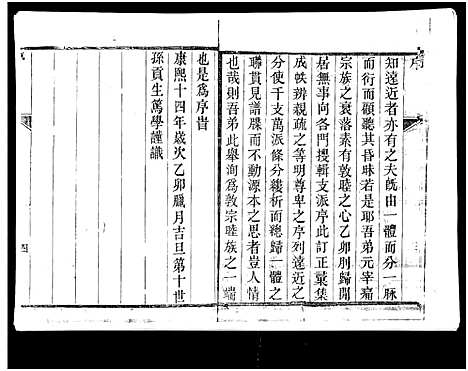 序
知遠近者亦有之夫旣由一體而分一脉
而衍而顧聽其昏昧若是耶吾弟元宰痛
宗族之衰落素有敦睦之心乙卯刖歸閒
居無事向各門搜輯支派序此訂正彙集
成帙辨親疏之等明尊卑之序列遠近之
分使千支萬派條分縷析而總歸一體之
聯貫見譜牒而不動源本之思者豈人情
也哉則吾弟此舉洵爲敦宗睦族之一端
也是爲序旹
康熙十四年歲次乙卯臘月吉旦第十世
孫貢生篤學謹識
四